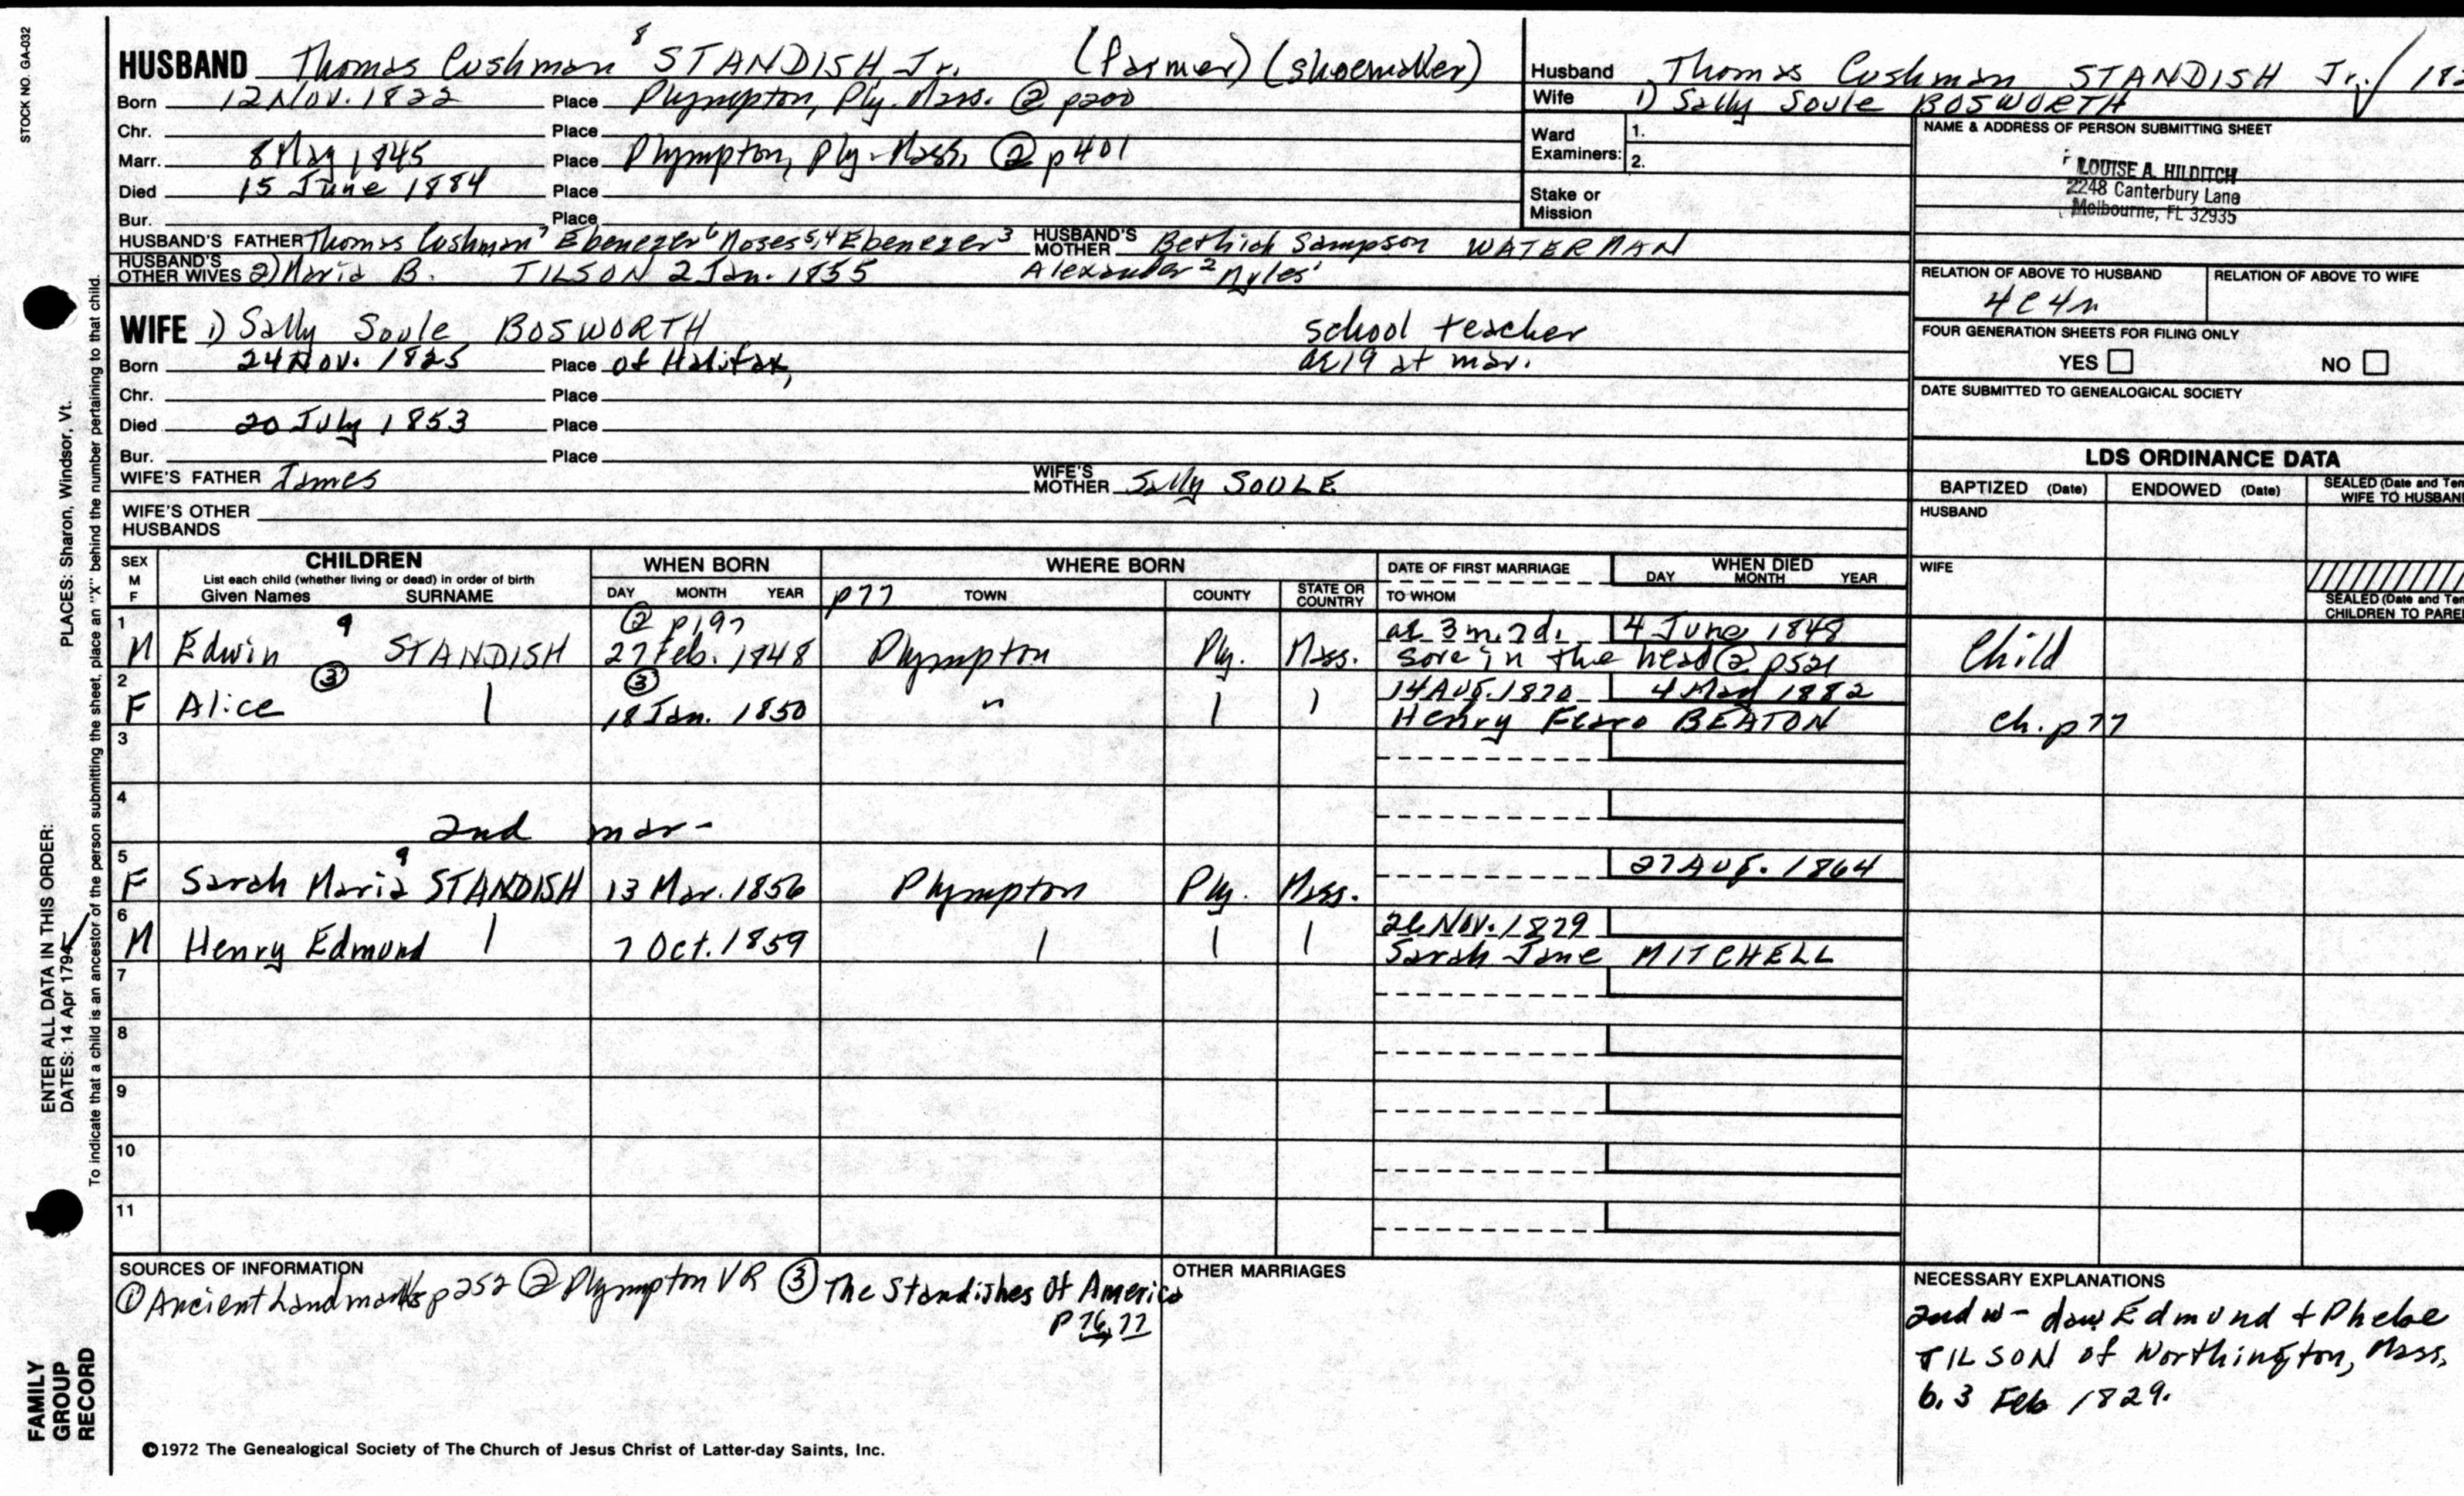 STOCK NO. GA-032
HUSBAND Thomas Cushman 8 STANDISH Jr. (farmer) (shoemaker)
Born 12 Nov. 1822 Place Plympton, Ply. Mass. ② p200
Chr. Place
Marr. 8 May 1845 Place Plympton, Ply. Mass. ② p401
Died 15 June 1884 Place
Bur. Place
HUSBAND'S FATHER Thomas Cushman 7 Ebenezer 6 Moses 5,4 Ebenezer 3 HUSBAND'S MOTHER Bethiah Sampson WATERMAN
HUSBAND'S OTHER WIVES 2) Maria B. TILSON 2 Jan. 1855 Alexander 2 Myles 1
WIFE 1) Sally Soule BOSWORTH school teacher
Born 24 Nov. 1825 Place of Halifax, ae 19 at mar.
Chr. Place
Died 20 July 1853 Place
Bur. Place
WIFE'S FATHER James WIFE'S MOTHER Sally SOULE
WIFE'S OTHER HUSBANDS
Husband Thomas Cushman STANDISH Jr. / 182
Wife 1) Sally Soule BOSWORTH
Ward Examiners: 1.
2.
Stake or Mission
NAME & ADDRESS OF PERSON SUBMITTING SHEET
LOUISE A. HILDITCH
2248 Canterbury Lane
Melbourne, FL 32935
RELATION OF ABOVE TO HUSBAND RELATION OF ABOVE TO WIFE
4C4R
FOUR GENERATION SHEETS FOR FILING ONLY
YES NO
DATE SUBMITTED TO GENEALOGICAL SOCIETY
LDS ORDINANCE DATA
BAPTIZED (Date) ENDOWED (Date) SEALED (Date and Tem
WIFE TO HUSBAN
HUSBAND
WIFE
SEALED (Date and Tem
CHILDREN TO PARE
SEX M F
CHILDREN
List each child (whether living or dead) in order of birth
Given Names SURNAME
WHEN BORN
DAY MONTH YEAR
WHERE BORN
p77 TOWN COUNTY STATE OR COUNTRY
DATE OF FIRST MARRIAGE
TO WHOM
WHEN DIED
DAY MONTH YEAR
1 9 ② p197 ae 3 m. 7 d. 4 June 1848
M Edwin STANDISH 27 Feb. 1848 Plympton Ply. Mass. Sore in the head ② p521 Child
2 ③ ③ 14 Aug. 1870 4 May 1882
F Alice | 18 Jan. 1850 " | | Henry BEATON ch. p77
3
4
2nd mar-
5 9 27 Aug. 1864
F Sarah Maria STANDISH 13 Mar. 1856 Plympton Ply. Mass.
6 26 Nov. 1879
M Henry Edmund | 7 Oct. 1859 | | | Sarah Jane MITCHELL
7
8
9
10
11
SOURCES OF INFORMATION
① Ancient Landmarks p252 ② Plympton VR ③ The Standishes Of America
p 76, 77
OTHER MARRIAGES
NECESSARY EXPLANATIONS
2nd w - dau Edmund + Phebe
TILSON of Worthington, Mass.
b. 3 Feb 1829.
©1972 The Genealogical Society of The Church of Jesus Christ of Latter-day Saints, Inc.
FAMILY
GROUP
RECORD
ENTER ALL DATA IN THIS ORDER:
DATES: 14 Apr 1794
PLACES: Sharon, Windsor, Vt.
To indicate that a child is an ancestor of the person submitting the sheet, place an "X" behind the number pertaining to that child.